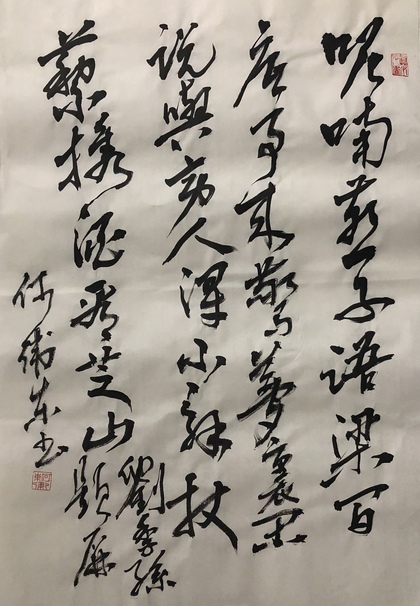 呢喃燕子語梁間
底事來驚夢裏閑
說與旁人渾不解杖
藜攜酒看芝山
劉季孫
題屏
衛東書